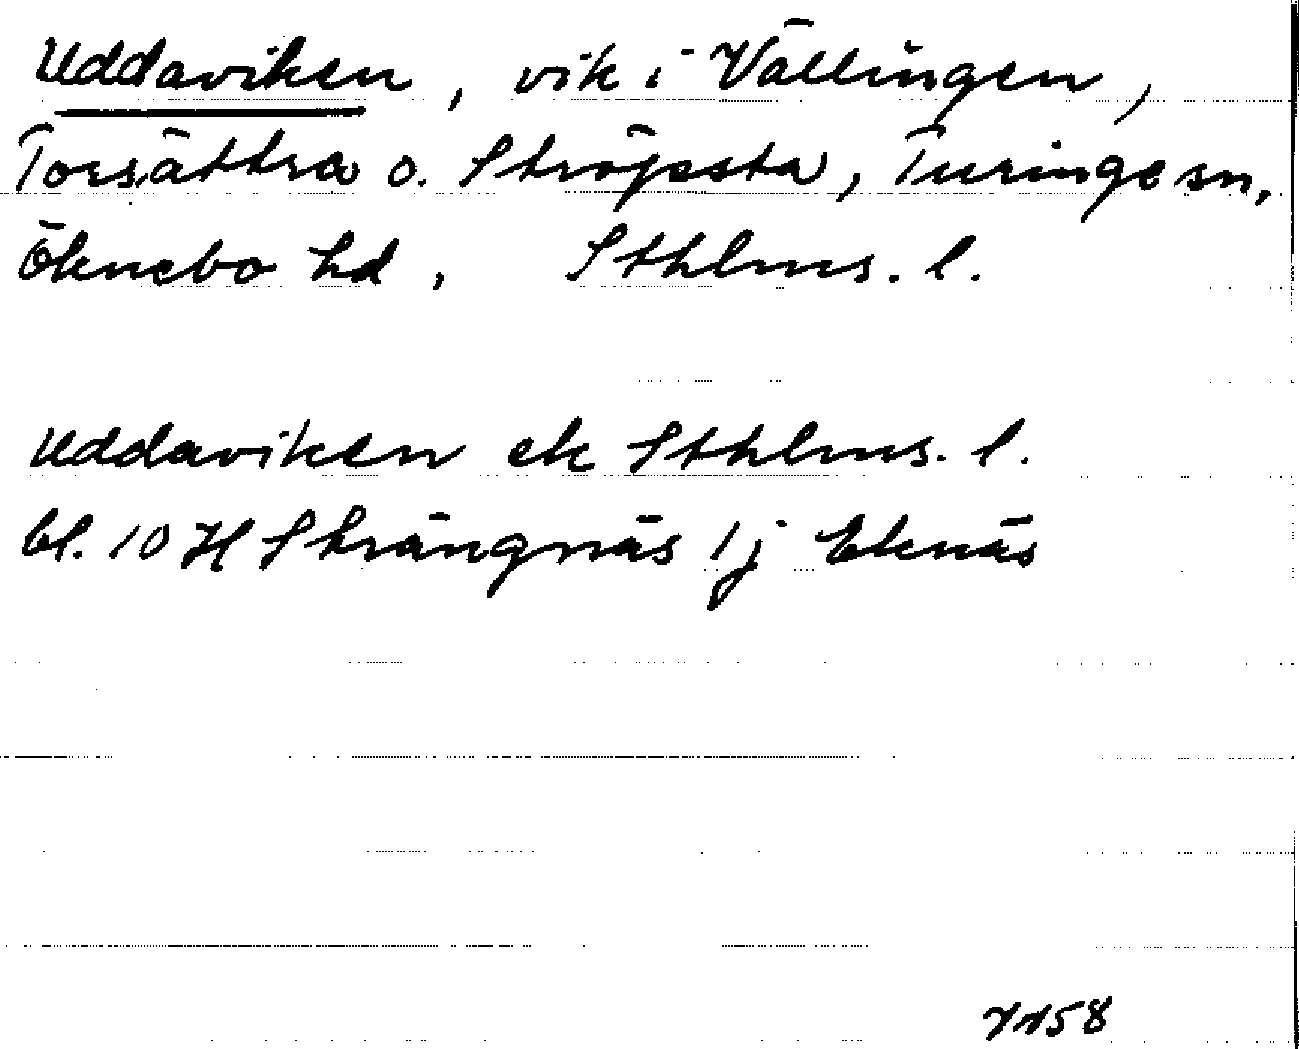 Uddaviken, vik i Vällingen,
Torsättra o. Ströpsta, Turinge sn,
Öknebo hd, Sthlms. l.
Uddaviken ek Sthlms. l.
bl. 10 H Strängnäs 1j Eknäs